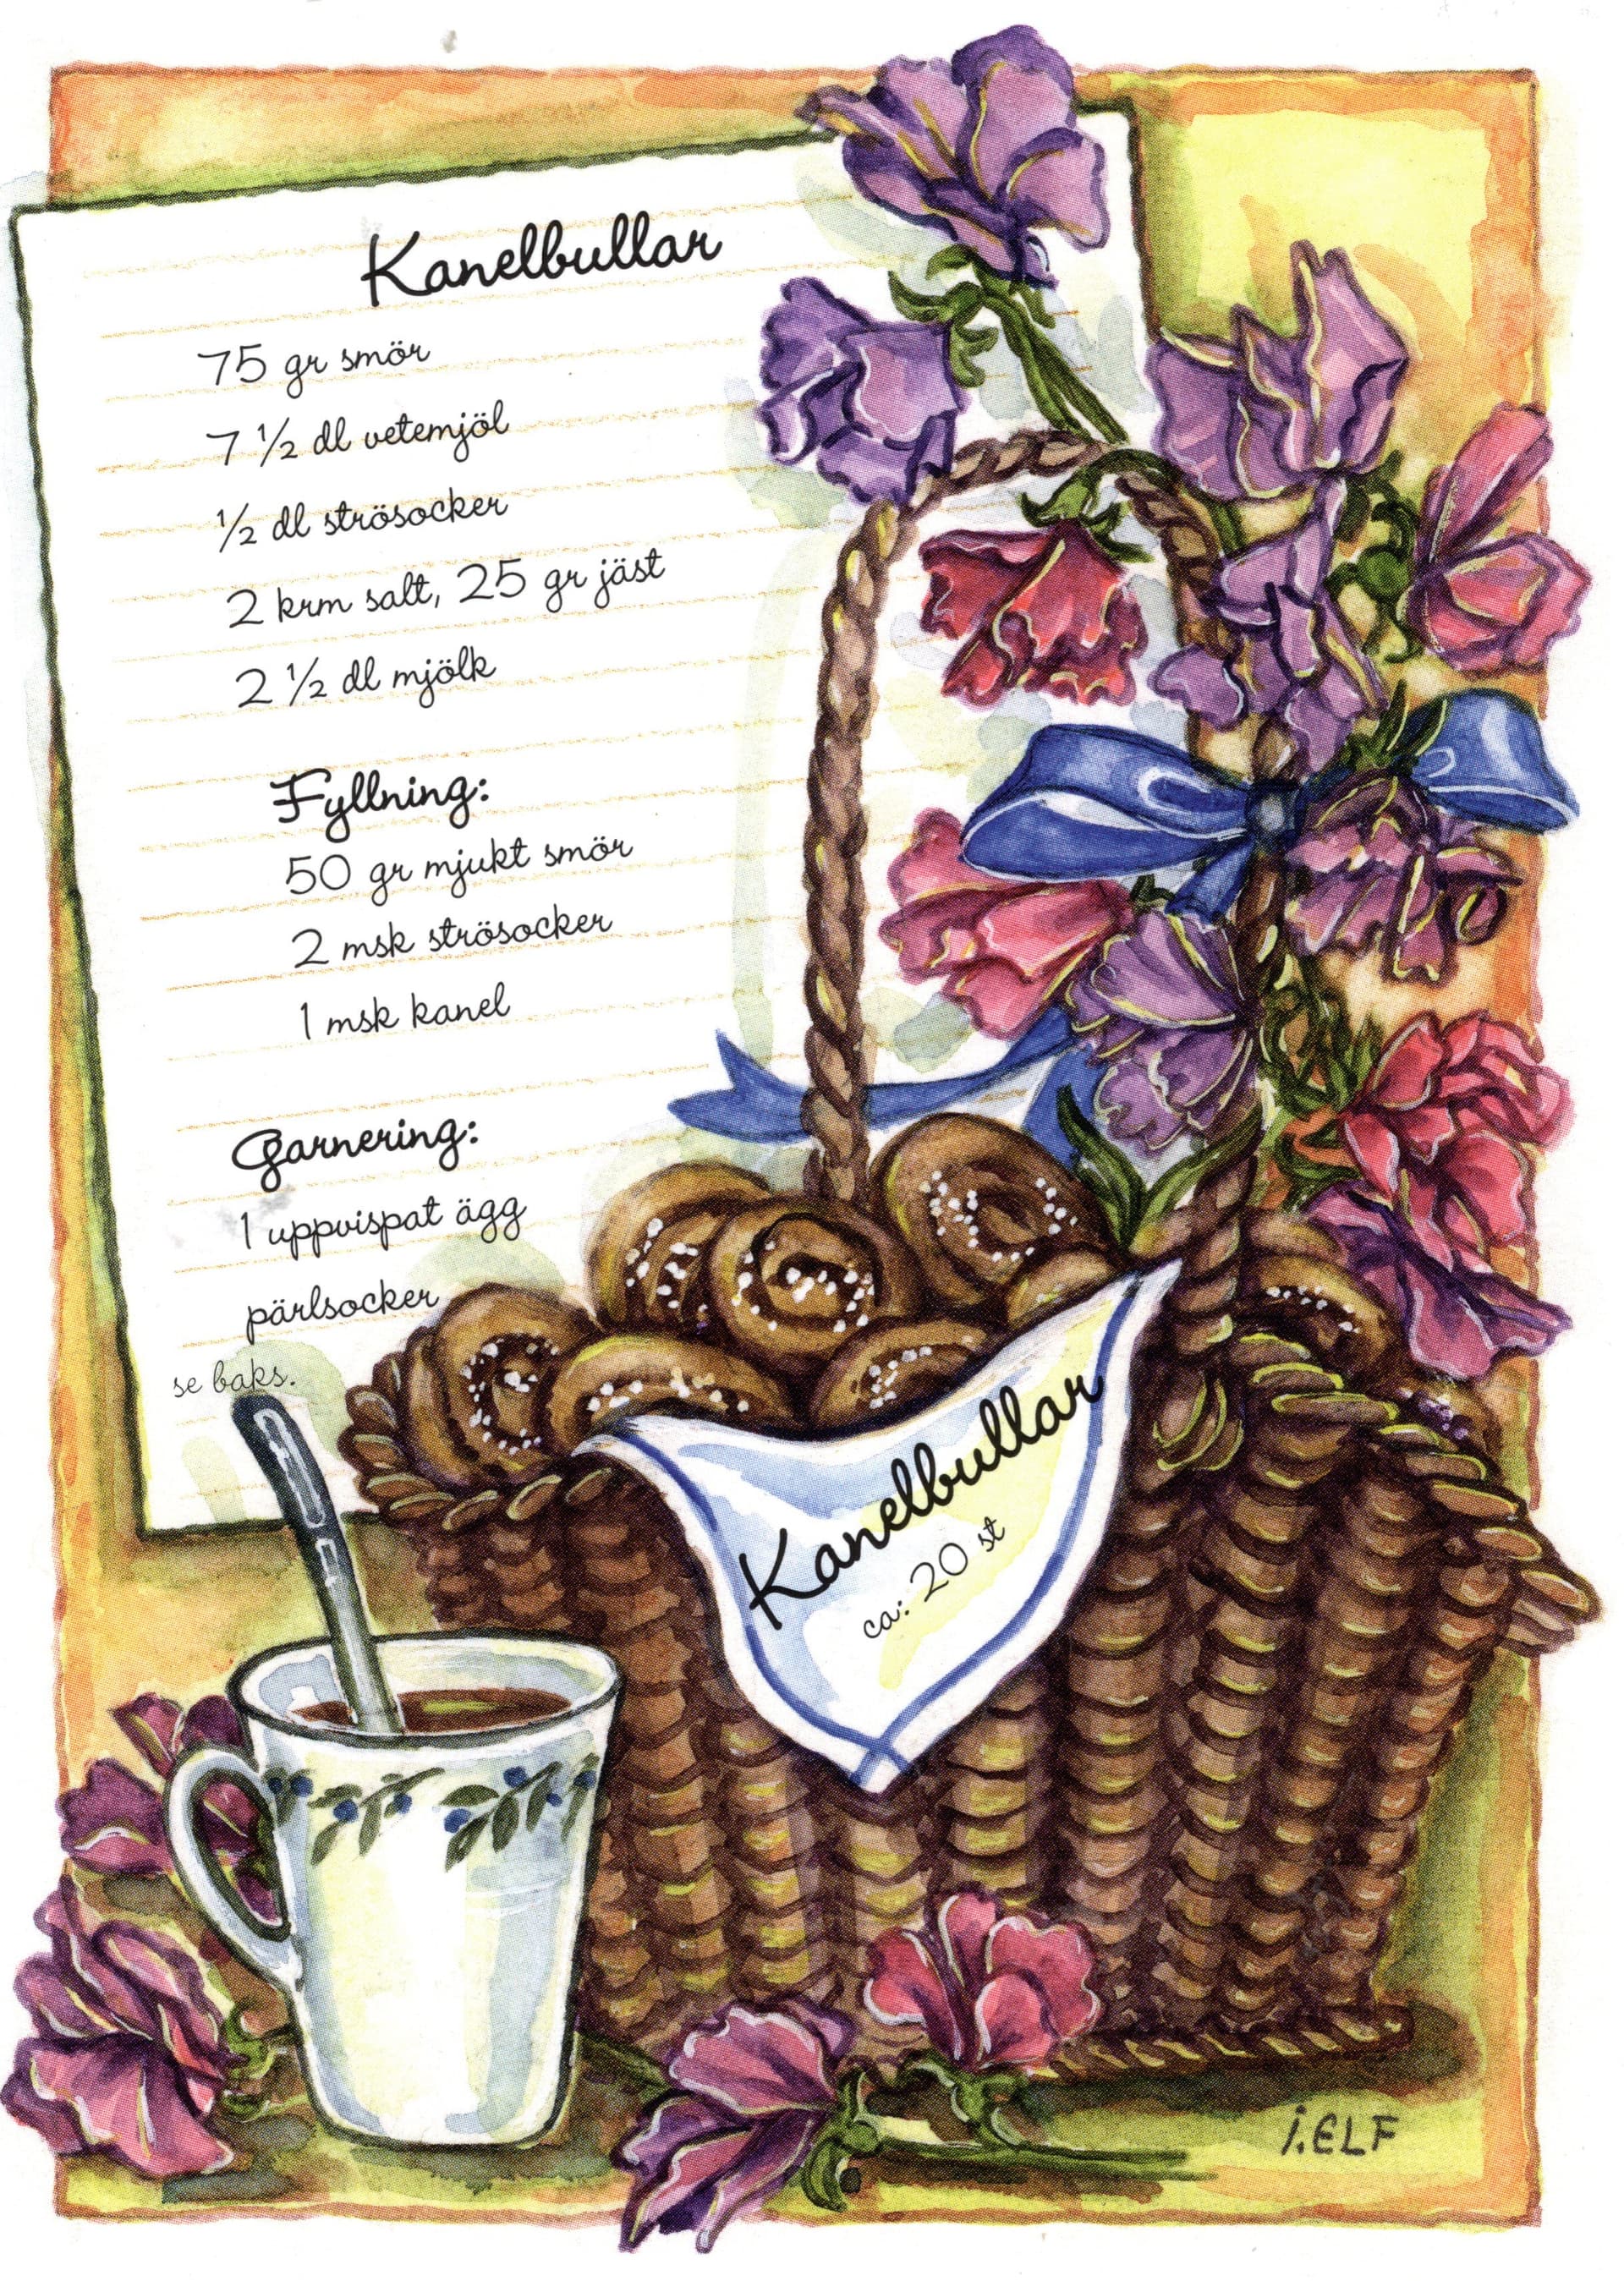 Kanelbullar
75 gr smör
7 ½ dl vetemjöl
½ dl strösocker
2 krm salt, 25 gr jäst
2 ½ dl mjölk
Fyllning:
50 gr mjukt smör
2 msk strösocker
1 msk kanel
Garnering:
1 uppvispat ägg
pärlsocker
se baks.
Kanelbullar
ca: 20 st
i.ELF